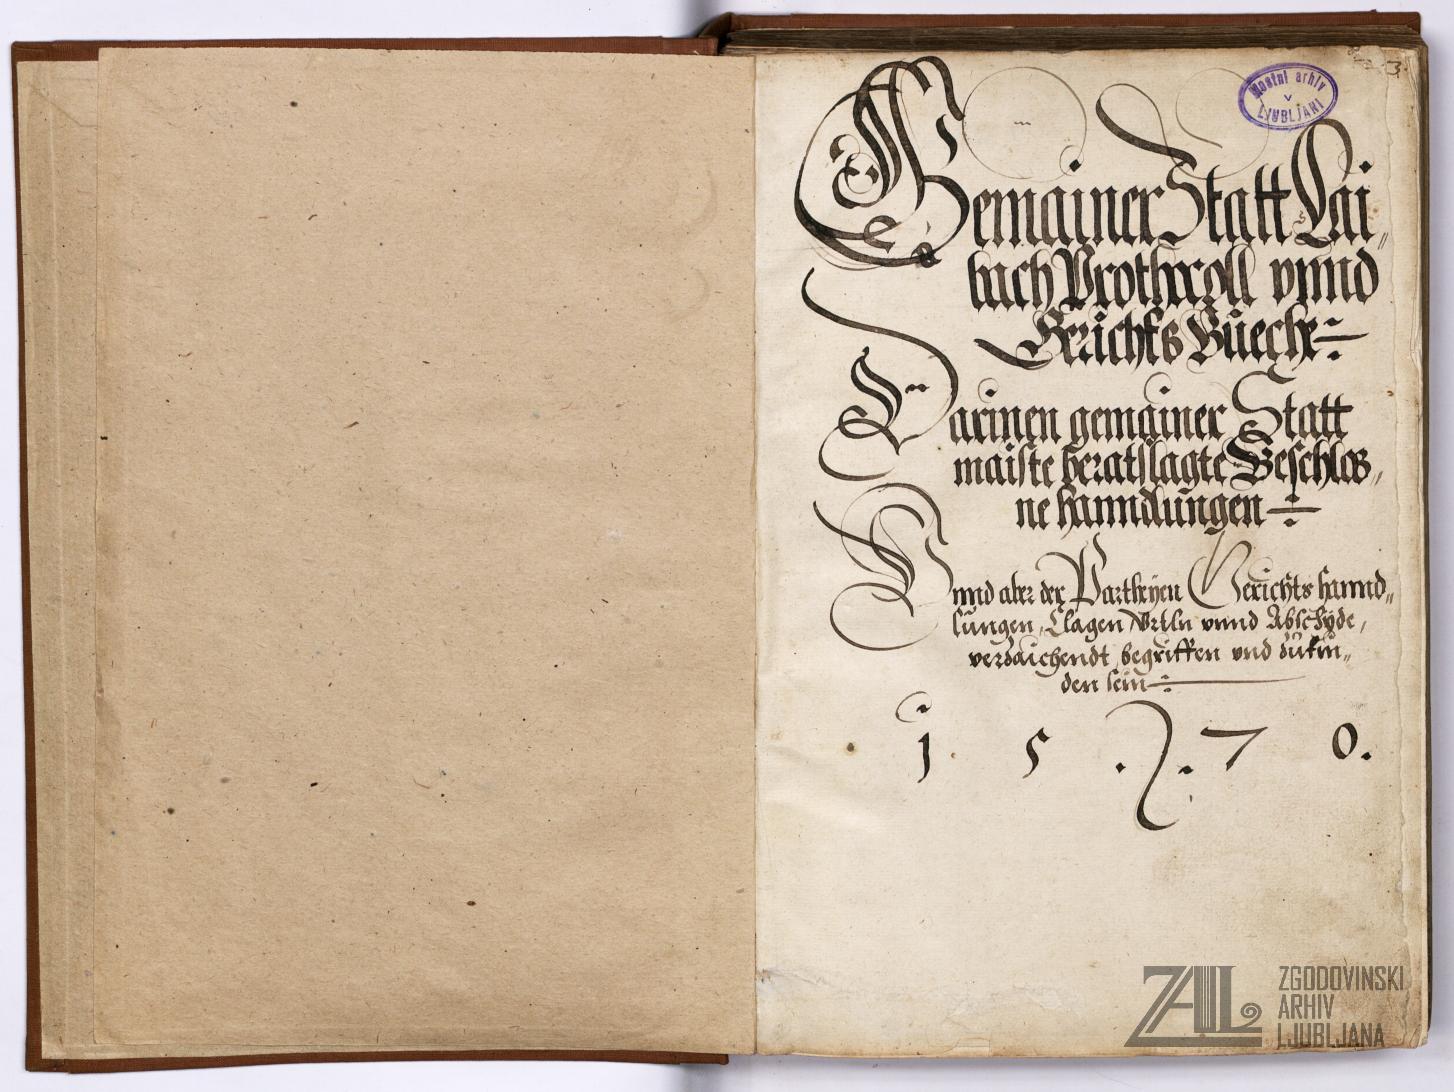 3.
Mestni arhiv
v
LJUBLJANI
Gemainer Statt Lai„
bach Prothocoll vnnd
Gerichts Büecher
Darinen gemainer Statt
maiste beratslagte Beschlos„
ne hanndlungen
Vnnd aber der Partheÿen Gerichts hannd„
lungen, Clagen Vrtln vnnd Abschÿde,
verzaichendt, begriffen vnd zufin„
den sein
1 5 . 7 0.
ZAL ZGODOVINSKI
ARHIV
LJUBLJANA